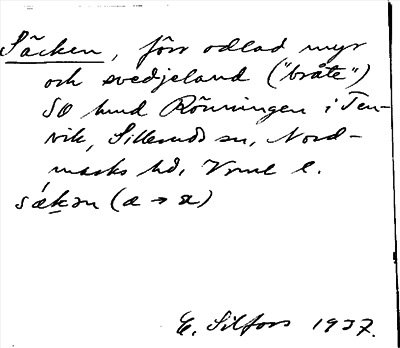 Säcken, förr odlad myr
och svedjeland ("bråte")
SO hmd Rönningen i Ten-
vik, Silleruds sn, Nord-
marks hd, Vrml l.
sǽkən (æ → a)
E. Silfors 1937.